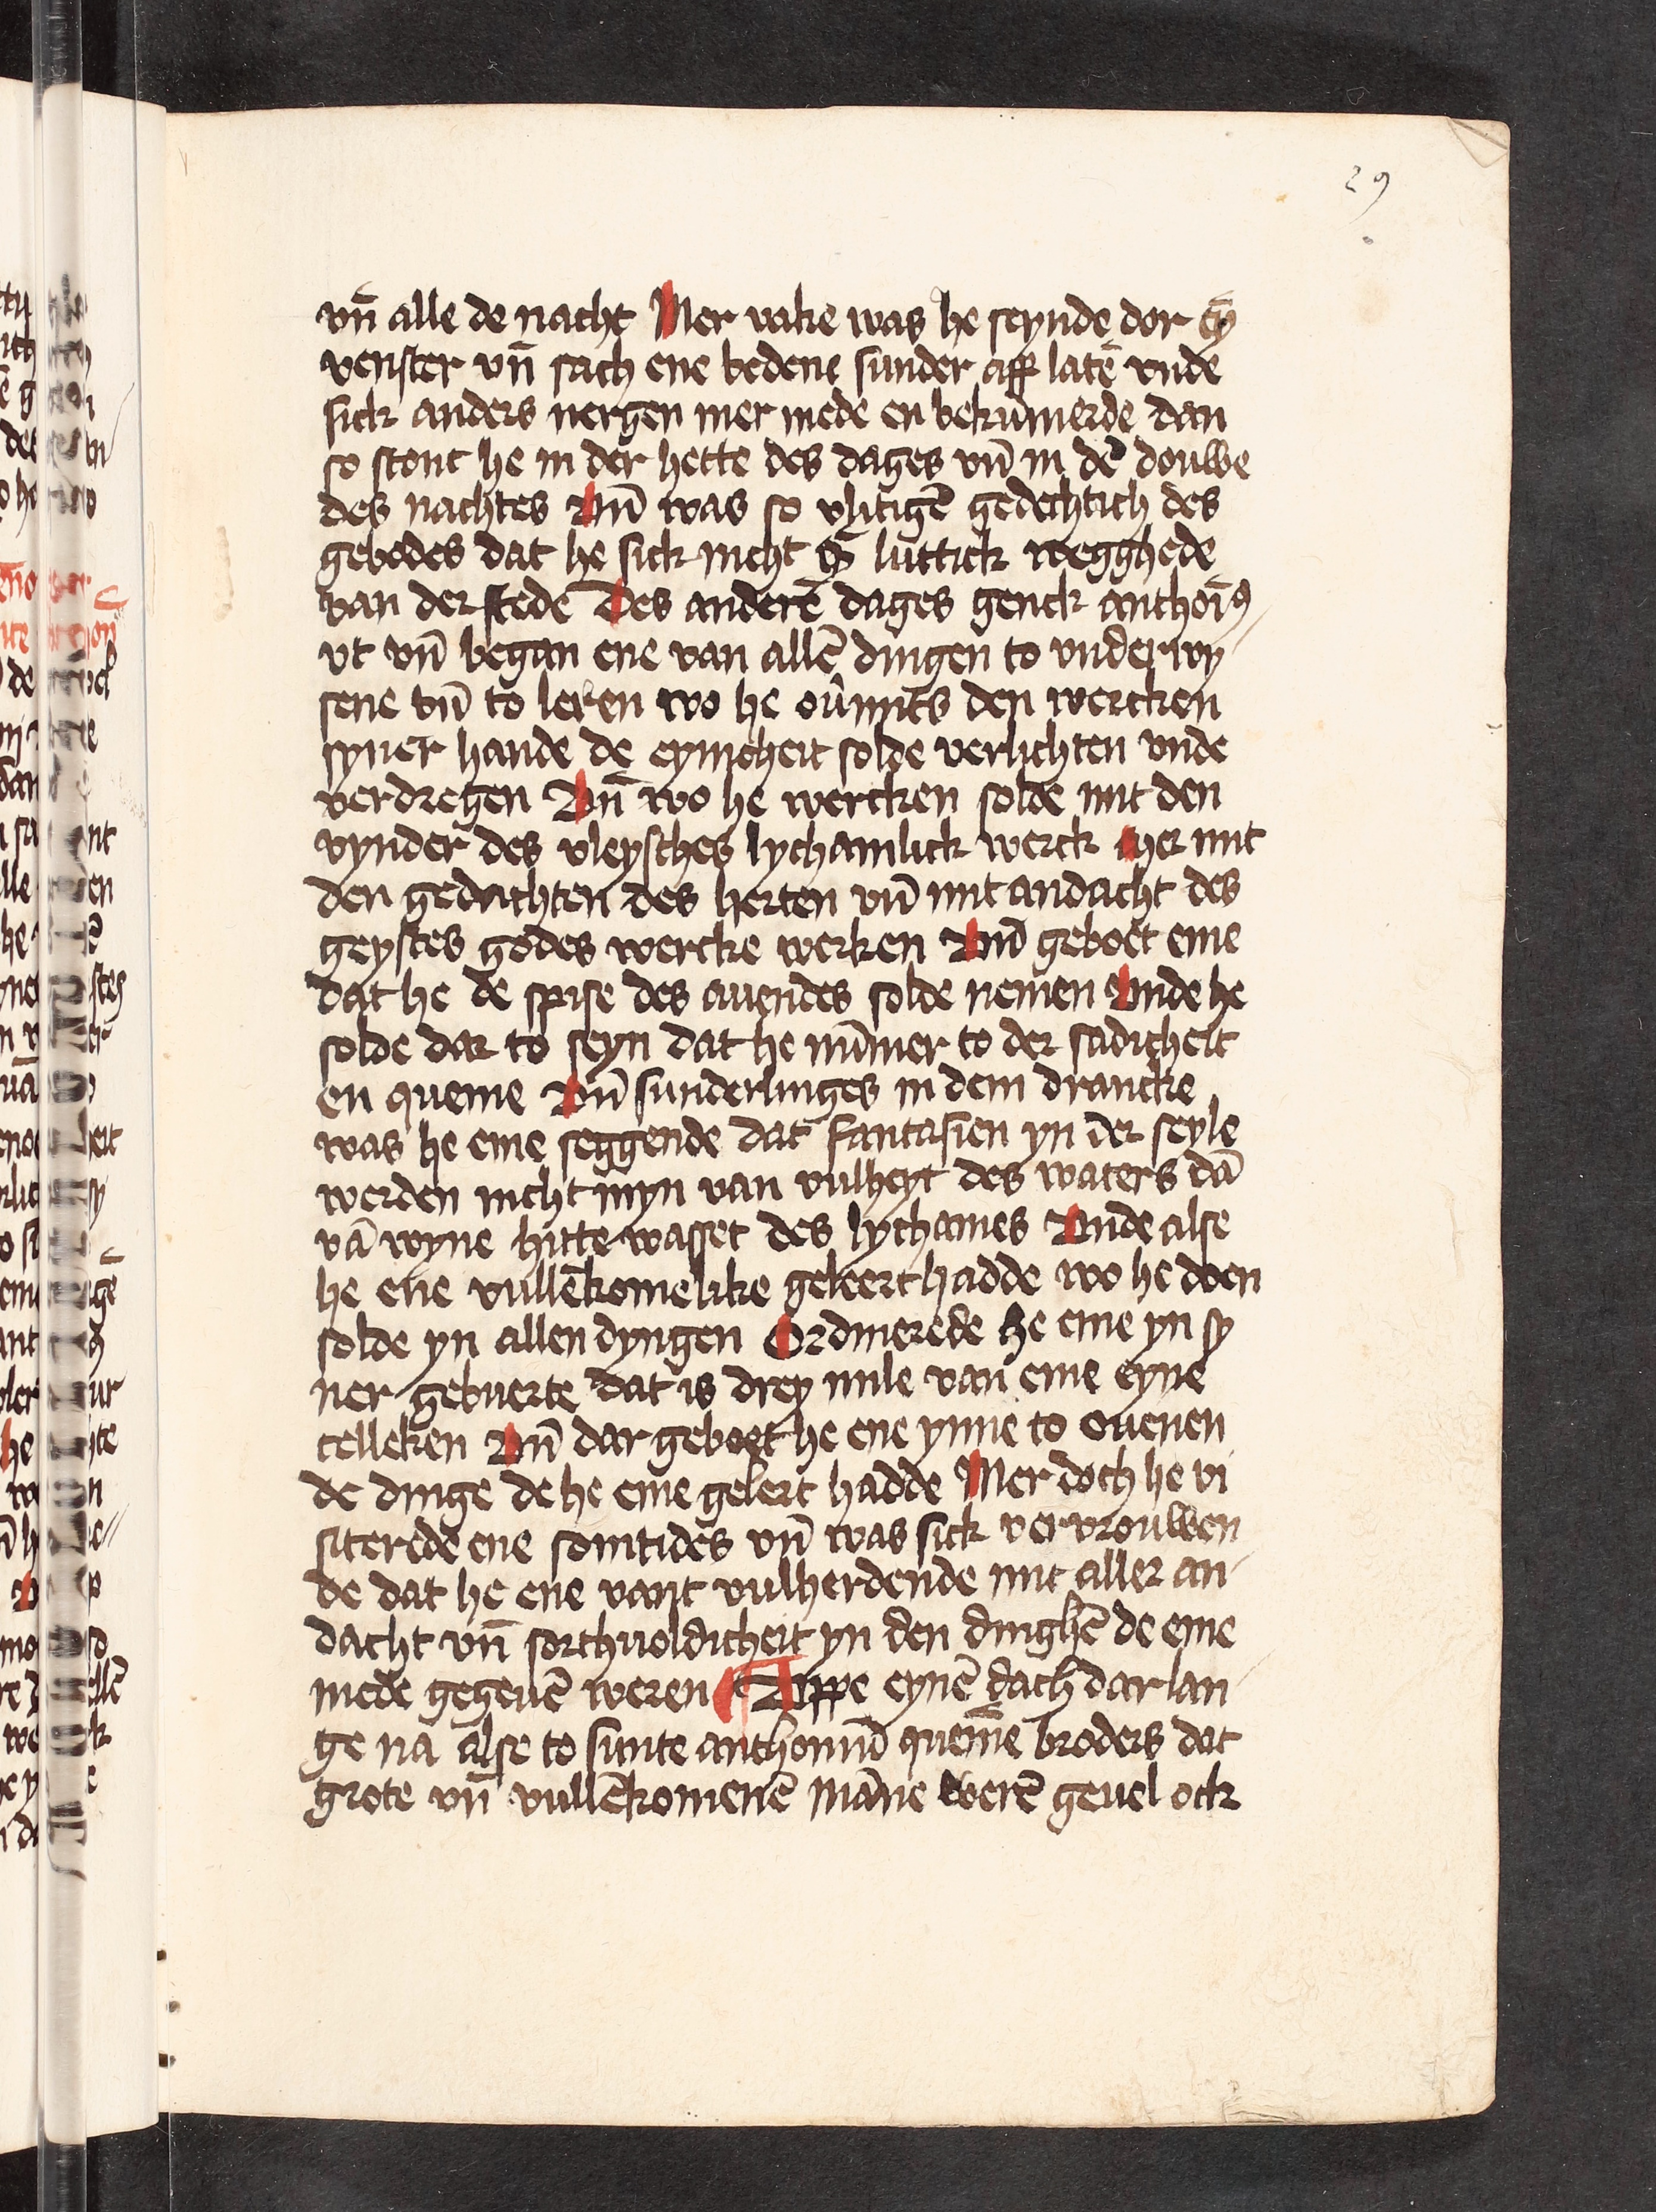 29
vn̄ alle de nacht Mer vake was he seynde dor ey̅
venster vn̄ sach ene bedene sunder aff latē vnde
sick anders nergen mer mede en bekūmerde dan
so stont he in der hette des dages vn̄ in dē douwe
des nachtes Vn̄ was so vlitigē gedechtich des
gebodes dat he sick nicht luttick wegghede
van der stede Des anderē dages genck anthoīꝰ
vt vn̄ began ene van allē dingen to vnderwy
sene vn̄ to leren wo he ouͤmits den wercken
syner hande de eynicheit solde verlichten vnde
verdregen Vn̄ wo he wercken solde mit den
vynder des vleysches lychamlick werck Mer mit
den gedachten des herten vn̄ mit andacht des
geystes godes wercke werken Vn̄ geboet eme
dat he de spise des auendes solde nemen Vnde he
solde dar to seyn dat he nūmer to der sadicheit
en queme Vn̄ sunderlinges in dem drancke
was he eme seggende dat fantasien yn der seyle
werden nicht myn van vulheyt des waters dā
vā wyne hitte wasset des lychames Vnde alse
he ene vullēkomelike geleert hadde wo he doen
solde yn allen dyngen Ordinerede he eme yn sy
ner gebuerte dat is drey mile van eme eyne
celleken Vn̄ dar geboet he ene ynne to ouenen
de dinge de he eme gelert hadde Mer doch he vi
siterede ene somtides vn̄ was sick vervrouwen
de dat he ene vant vulherdende mit aller an-
dacht vn̄ sorchuoldicheit yn den dinghē de eme
mede gegeuē weren Vppe eynē dach dar lan-
ge na alse to sunte anthoniū quemē broders dat
grote vn̄ vullēkomenē māne werē geuel ock